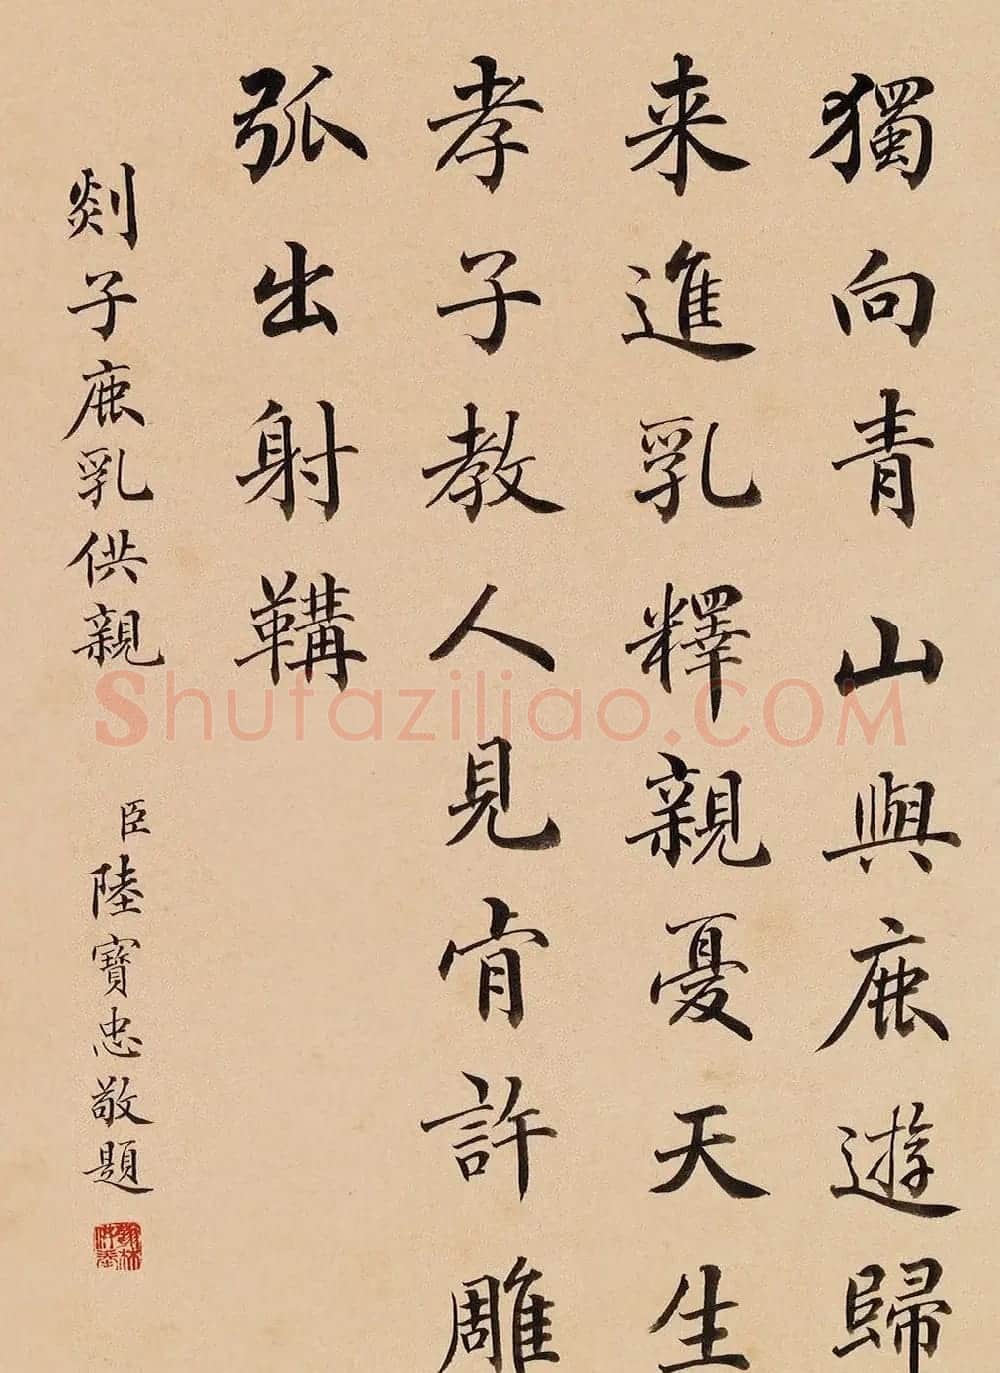 獨向青山與鹿遊歸
来進乳釋親憂天生
孝子教人見肯許雕
弧出射鞲
剡子鹿乳供親
臣陸寶忠敬題
Shufaziliao.COM